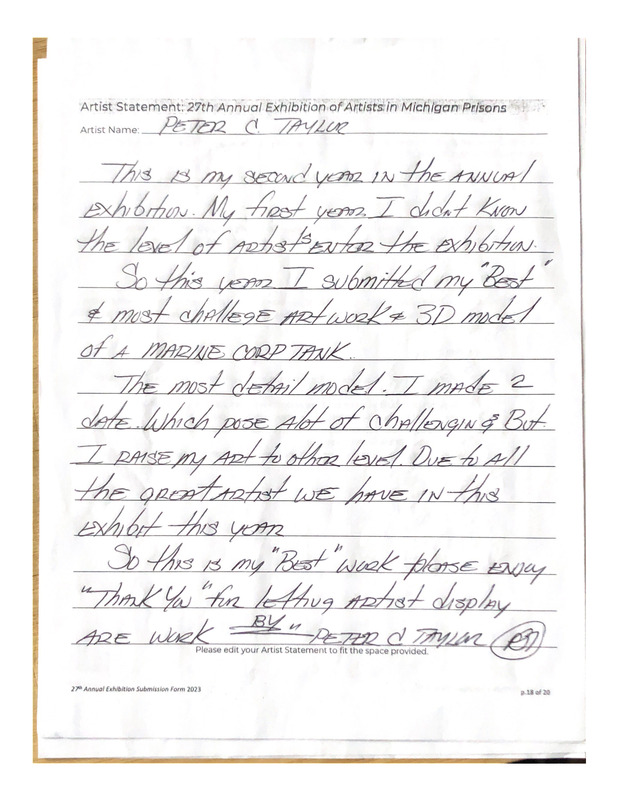 Artist Statement: 27th Annual Exhibition of Artists in Michigan Prisons
Artist Name: PETER C TAYLOR
This is my second year in the annual
exhibition. My first year I didnt know
the level of artist's enter the exhibition.
So this year I submitted my "Best"
& most challege art work & 3D model
of a MARINE CORP TANK.
The most detail model. I made 2
date. Which pose alot of challenging & But
I raise my art to other level. Due to all
the great artist we have in this
exhibit this year
So this is my "Best" work please enjoy
"Thank You" for lethug artist display
are work BY " PETER C TAYLOR
Please edit your Artist Statement to fit the space provided.
27th Annual Exhibition Submission Form 2023
p.18 of 20